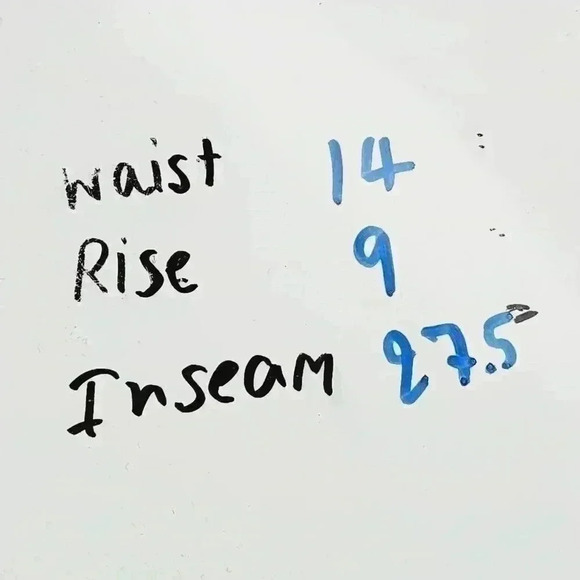 Waist 14
Rise 9
Inseam 27.5